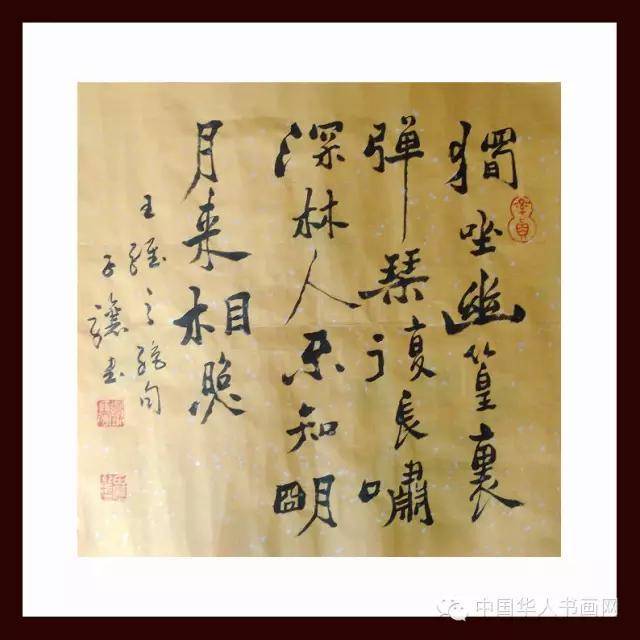 獨坐幽篁裏
弹琴復長嘯
深林人不知明
月来相照
王維之絕句
子讓書
中国华人书画网